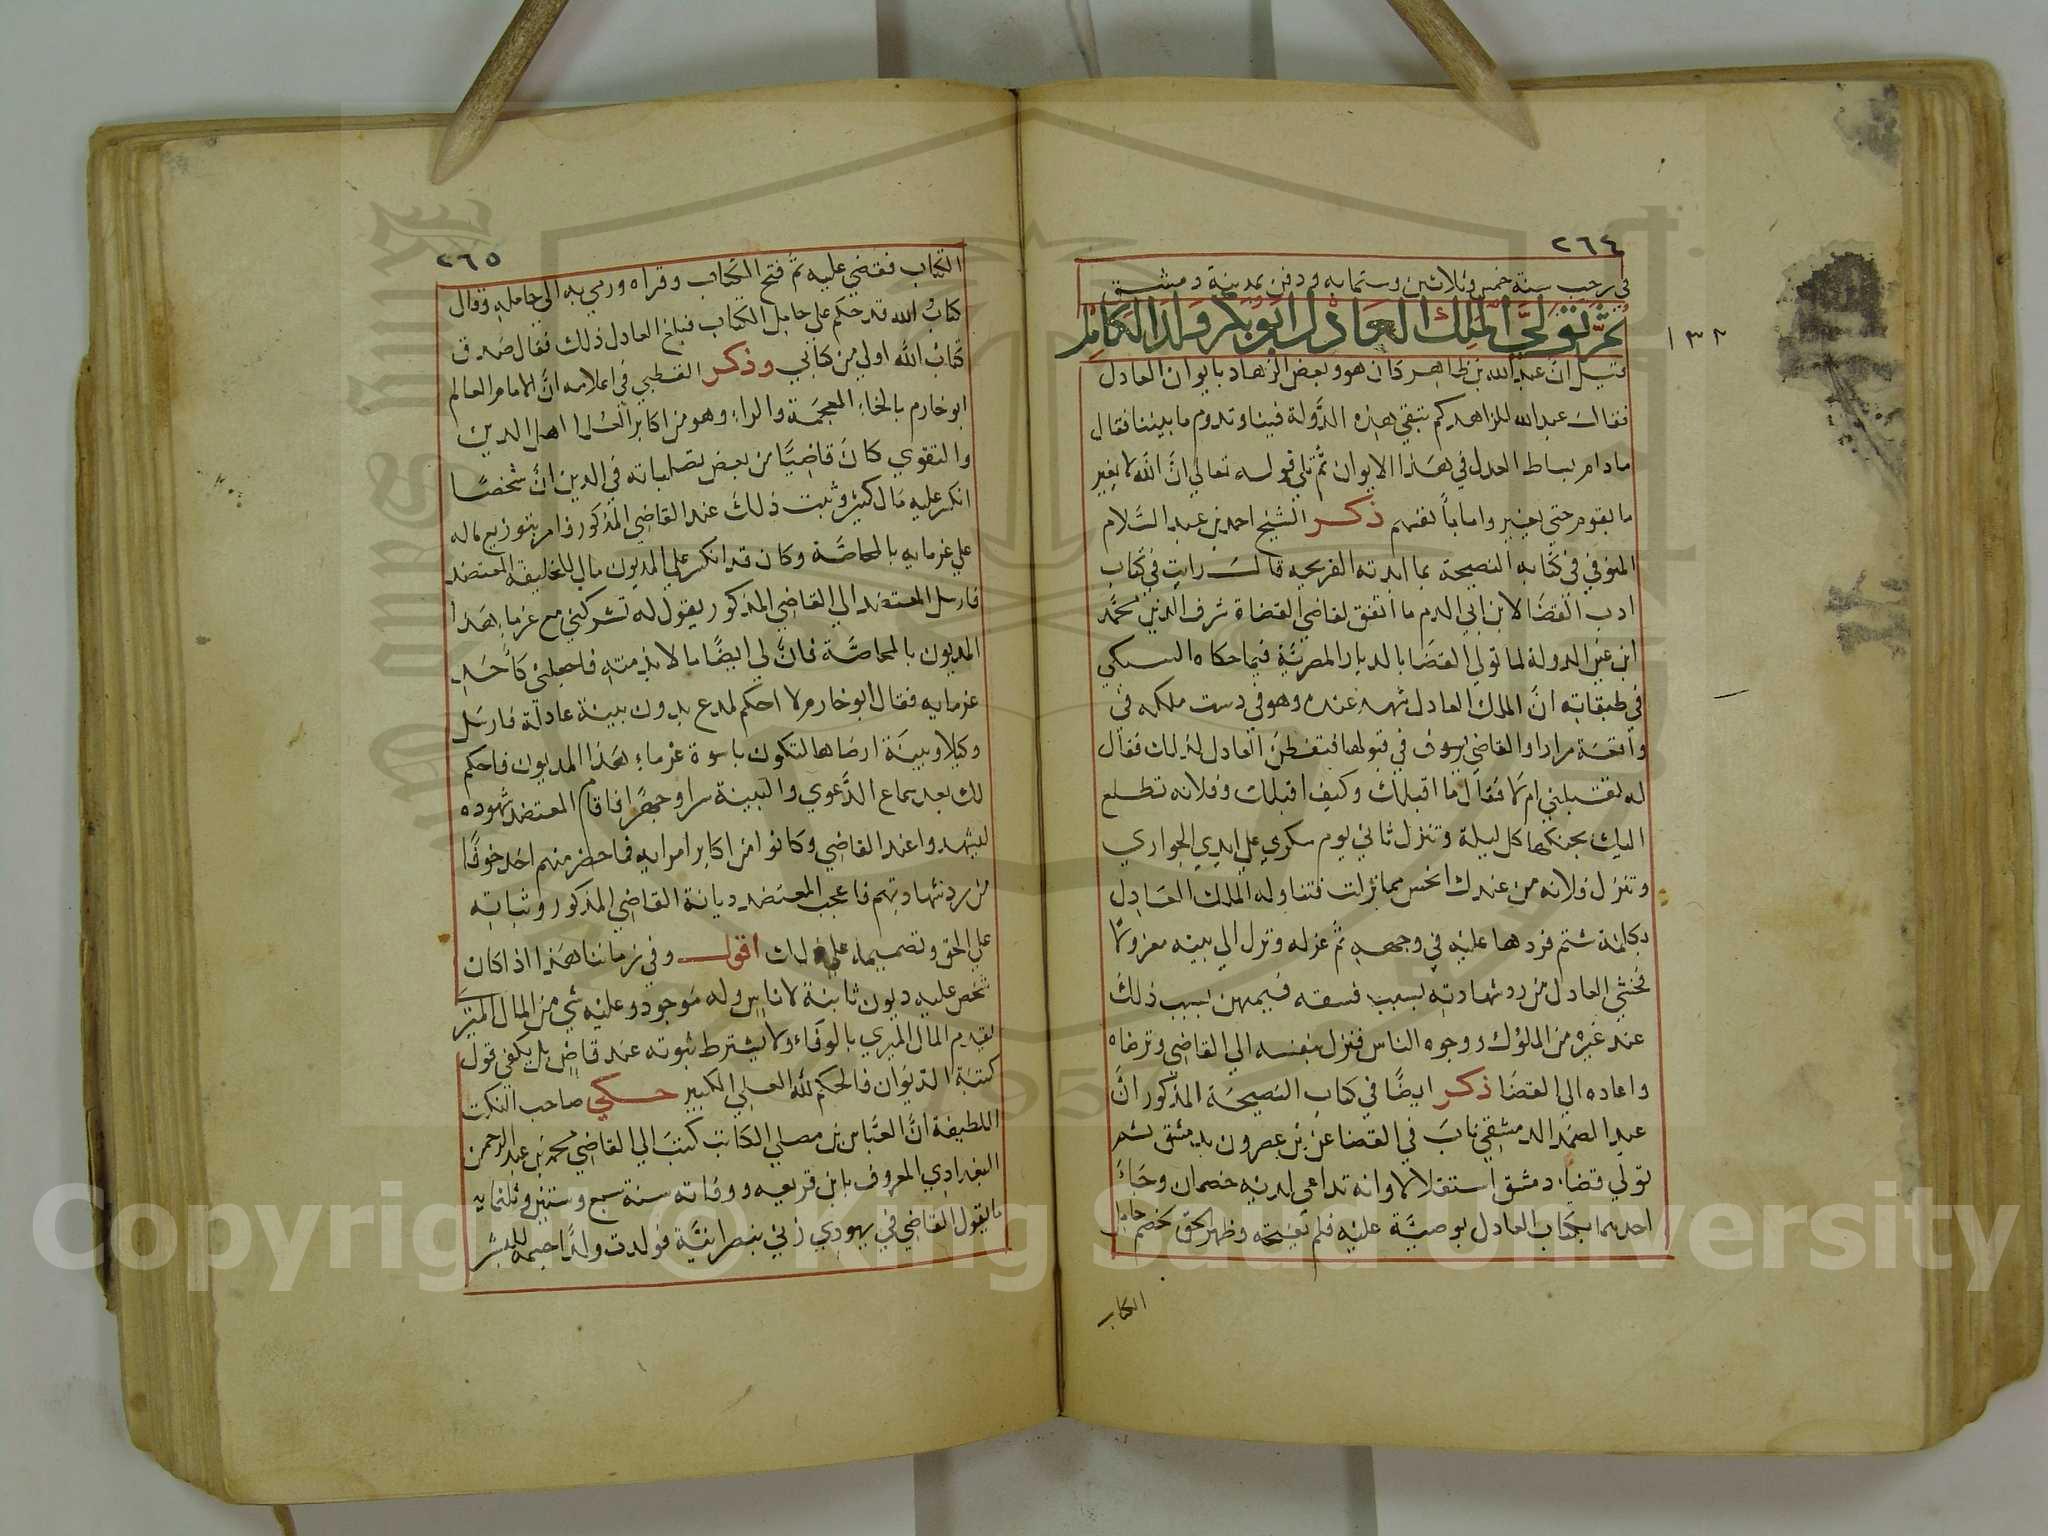 ٢٦٤
في رجب سنة خمس وثلاثين وستمايه ودفن بمدينة دمشق
ثم تولي الملك العادل ابو بكر ولد الكامل
١٣٢
قيل ان عبد الله بن طاهر كان هو وبعض الزهاد بايوان العادل
فقال عبد الله للزاهد كم تبقي هذه الدولة فينا وتدوم ما بيننا فقال
ما دام بساط العدل في هذا الايوان ثم تلي قوله تعالي ان الله لا يغير
ما بقوم حتي يغيروا ما بانفسهم ذكر الشيخ احمد بن عبد السلام
المنوفي في كتابه النصيحة بما ابدته القريحه قال رايت في كتاب
ادب القضا لابن ابي الدم ما اتفق لقاضي القضاة شرف الدين محمد
ابن عين الدولة لما تولي القضا بالديار المصرية فيما حكاه السبكي
في طبقاته ان الملك العادل شهد عنده وهو في دست ملكه في
واقعة مرارا والقاضي يسوف في قبولها فتفطن العادل لذلك فقال
له تقبلني ام لا فقال ما اقبلك وكيف اقبلك وفلانه تطلع
اليك بجنكها كل ليلة وتنزل ثاني يوم سكري علي ايدي الجواري
وتنزل فلانه من عندك انحس مما نزلت فتناوله الملك العادل
بكلمة شتم فردها عليه في وجهه ثم عزله ونزل الي بيته معزولا
فخشي العادل من رد شهادته بسبب فسقه فيمهن بسبب ذلك
عند غيره من الملوك ووجوه الناس فنزل بنفسه الي القاضي وترضاه
واعاده الي القضا ذكر ايضا في كتاب النصيحة المذكور ان
عبد الصمد الدمشقي ناب في القضا عن بن عصرون بدمشق ثم
تولي قضاء دمشق استقلالا وانه تداعي لديه خصمان وجاء
احدهما بكتاب العادل بوصيّة عليه فلم يفتحه وظهر الحق لخصم حامل
الكتاب
٢٦٥
الكتاب فقضي عليه ثم فتح الكتاب وقراه ورمي به الي حامله وقال
كتاب الله قد حكم علي حامل الكتاب فبلغ العادل ذلك فقال صدق
كتاب الله اولي من كتابي وذكر القطبي في اعلامه ان الامام العالم
ابو خازم بالخاء المعجمة والراء وهو من اكابر العلماء اهل الدين
والتقوي كان قاضيّا من بعض تصلباته في الدين ان شخصا
انكسر عليه مال كثير وثبت ذلك عند القاضي المذكور فامر بتوزيع ماله
علي غرمايه بالمحاصة وكان قد انكسر علي المديون مال للخليفة المعتضد
فارسل المعتضد الي القاضي المذكور يقول له تشركني مع غرماء هذا
المديون بالمحاصة فان لي ايضا مالا بذمته فاجعلني كاحد
غرمايه فقال ابو خازم لا احكم لمدع بدون بينة عادلة فارسل
وكيلا وبينة ارضاها لتكون باسوة غرماء هذا المديون فاحكم
لك بعد سماع الدعوي والبينة سرا وجهرا فاقام المعتضد شهوده
ليشهدوا عند القاضي وكانوا من اكابر امرايه فما حضر منهم احد خوفًا
من رد شهادتهم فاعجب المعتضد ديانة القاضي المذكور وثباته
علي الحق وتصميمه علي ذلك اقول وفي زماننا هذا اذا كان
شخص عليه ديون ثابتة لاناس وله موجود وعليه شي من المال الميري
يقدم المال الميري بالوفاء ولا يشترط ثبوته عند قاض بل يكفي قول
كتبة الديوان فالحكم لله العلي الكبير حكي صاحب النكت
اللطيفة ان العباس بن معلي الكاتب كتب الي القاضي محمد بن عبد الرحمن
البغدادي المعروف بابن قريعه ووفاته سنة سبع وستين وثلثمايه
ما يقول القاضي في يهودي زني بنصرانيّة فولدت ولدًا جسمه للبشر